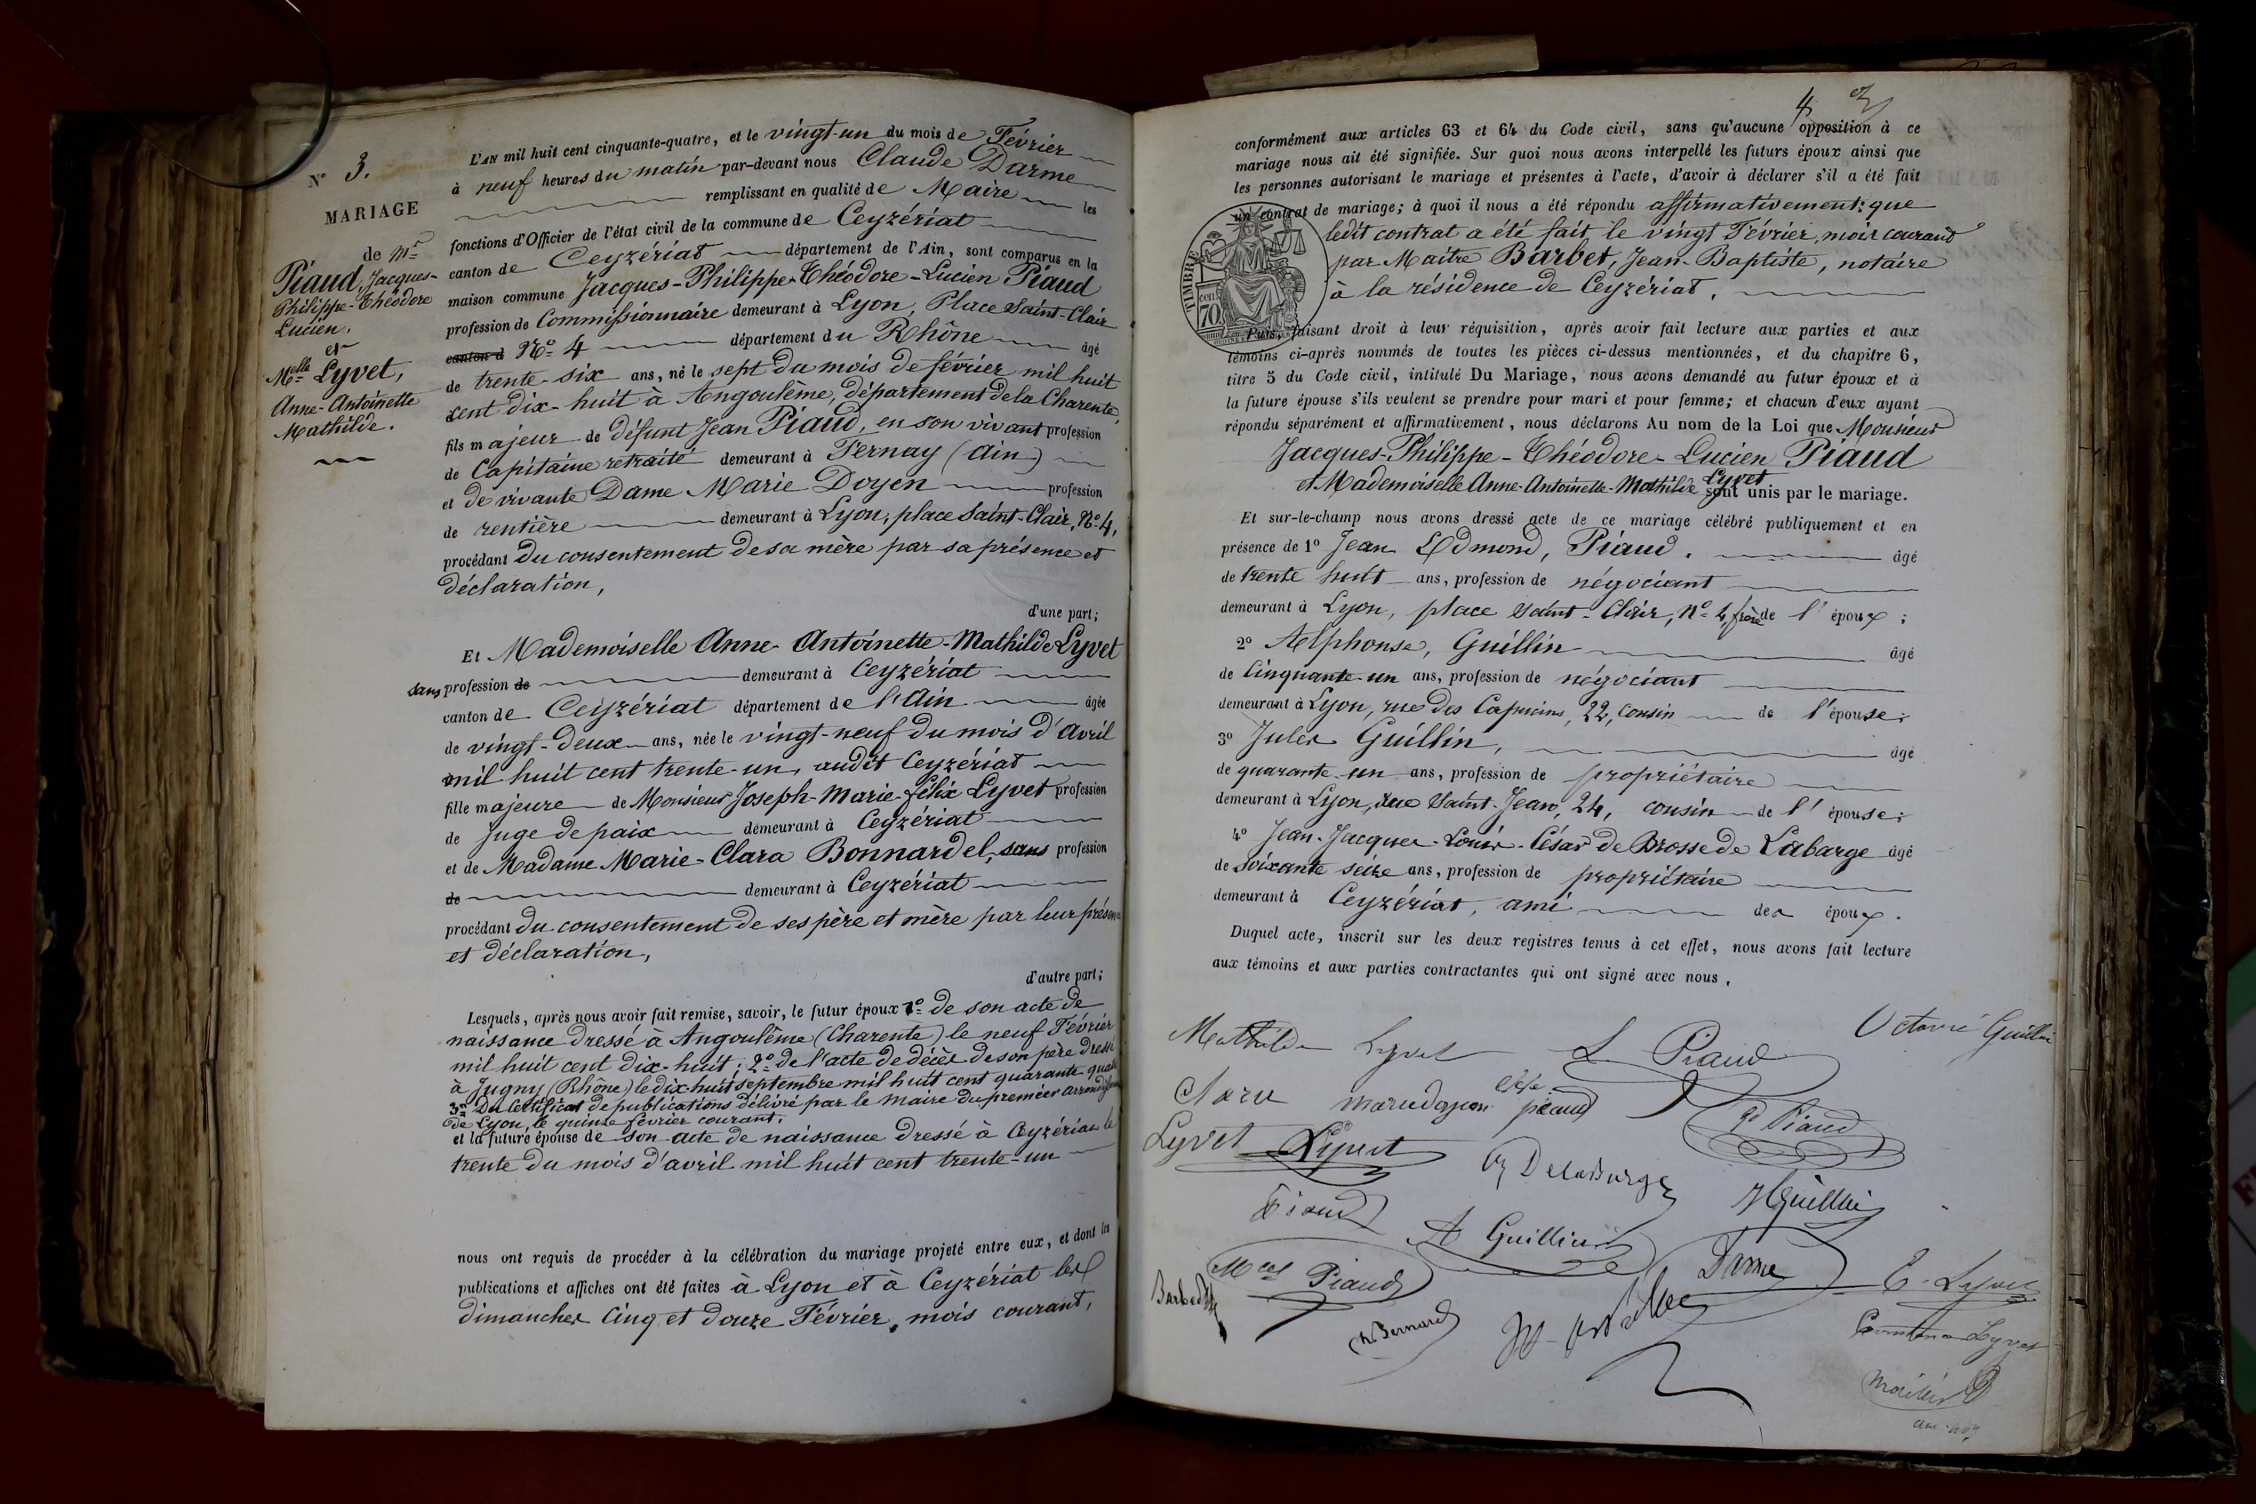 N° 3.
MARIAGE
de Mr
Piaud, Jacques-
Philippe-Théodore
Lucien.
et
Melle Lyvet,
Anne-Antoinette
Mathilde.
L'AN mil huit cent cinquante-quatre, et le vingt-un du mois de Février
à neuf heures du matin par-devant nous Claude Darme
remplissant en qualité de Maire les
fonctions d'Officier de l'état civil de la commune de Ceyzériat
canton de Ceyzériat département de l'Ain, sont comparus en la
maison commune Jacques-Philippe-Théodore-Lucien Piaud
profession de Commissionnaire demeurant à Lyon, Place Saint-Clair
canton d N° 4 département du Rhône âgé
de trente-six ans, né le sept du mois de février mil huit
cent dix-huit à Angoulême, département de la Charente,
fils majeur de défunt Jean Piaud, en son vivant profession
de Capitaine retraité demeurant à Fernay (Ain)
et de vivante Dame Marie Doyen profession
de rentière demeurant à Lyon, place Saint-Clair, N° 4,
procédant du consentement de sa mère par sa présence et
déclaration,
d'une part;
Et Mademoiselle Anne-Antoinette-Mathilde Lyvet
sans profession de demeurant à Ceyzériat
canton de Ceyzériat département de l'Ain âgée
de vingt-deux ans, née le vingt-neuf du mois d'avril
mil huit cent trente-un, audit Ceyzériat
fille majeure de Monsieur Joseph-Marie-félix Lyvet profession
de Juge de paix demeurant à Ceyzériat
et de Madame Marie-Clara Bonnardel, sans profession
de demeurant à Ceyzériat
procédant du consentement de ses père et mère par leur présence
et déclaration,
d'autre part;
Lesquels, après nous avoir fait remise, savoir, le futur époux 1° de son acte de
naissance dressé à Angoulême (Charente) le neuf Février
mil huit cent dix-huit; 2° de l'acte de décès de son père dressé
à Jugny (Rhône) le dix-huit septembre mil huit cent quarante quatre
3° Du Certificat de publications délivré par le maire du premier arrondissement
de Lyon, le quinze février courant;
et la future épouse de son acte de naissance dressé à Ceyzériat le
trente du mois d'avril mil huit cent trente-un
nous ont requis de procéder à la célébration du mariage projeté entre eux, et dont les
publications et affiches ont été faites à Lyon et à Ceyzériat les
dimanches Cinq et douze Février, mois courant,
4
conformément aux articles 63 et 64 du Code civil, sans qu'aucune opposition à ce
mariage nous ait été signifiée. Sur quoi nous avons interpellé les futurs époux ainsi que
les personnes autorisant le mariage et présentes à l'acte, d'avoir à déclarer s'il a été fait
un contrat de mariage; à quoi il nous a été répondu affirmativement: que
ledit contrat a été fait le vingt Février, mois courant
par Maître Barbet, Jean-Baptiste, notaire
à la résidence de Ceyzériat.
TIMBRE
70
Puis, faisant droit à leur réquisition, après avoir fait lecture aux parties et aux
témoins ci-après nommés de toutes les pièces ci-dessus mentionnées, et du chapitre 6,
titre 5 du Code civil, intitulé Du Mariage, nous avons demandé au futur époux et à
la future épouse s'ils veulent se prendre pour mari et pour femme; et chacun d'eux ayant
répondu séparément et affirmativement, nous déclarons Au nom de la Loi que Monsieur
Jacques-Philippe-Théodore-Lucien Piaud
et Mademoiselle Anne-Antoinette-Mathilde Lyvet sont unis par le mariage.
Et sur-le-champ nous avons dressé acte de ce mariage célébré publiquement et en
présence de 1° Jean Edmond, Piaud. âgé
de trente huit ans, profession de négociant
demeurant à Lyon, place Saint-Clair, N° 4, frère de l'époux;
2° Alphonse, Guillin âgé
de Cinquante-un ans, profession de négociant
demeurant à Lyon, rue des Capucins, 22, cousin de l'épouse;
3° Jules Guillin, âgé
de quarante-un ans, profession de propriétaire
demeurant à Lyon, rue Saint-Jean, 24, cousin de l'épouse;
4° Jean-Jacques-Louis-César de Brosse de Labarge âgé
de soixante seize ans, profession de propriétaire
demeurant à Ceyzériat, ami des époux.
Duquel acte, inscrit sur les deux registres tenus à cet effet, nous avons fait lecture
aux témoins et aux parties contractantes qui ont signé avec nous.
Mathilde Lyvet L Piaud Octavie Guillin
Clara marie doyen piaud
Lyvet Lyvet Piaud
DelaBarge
Piaud A Guillin JGuillin
Piaud Darme E. Lyvet
Barbet Bernard
Lyvet